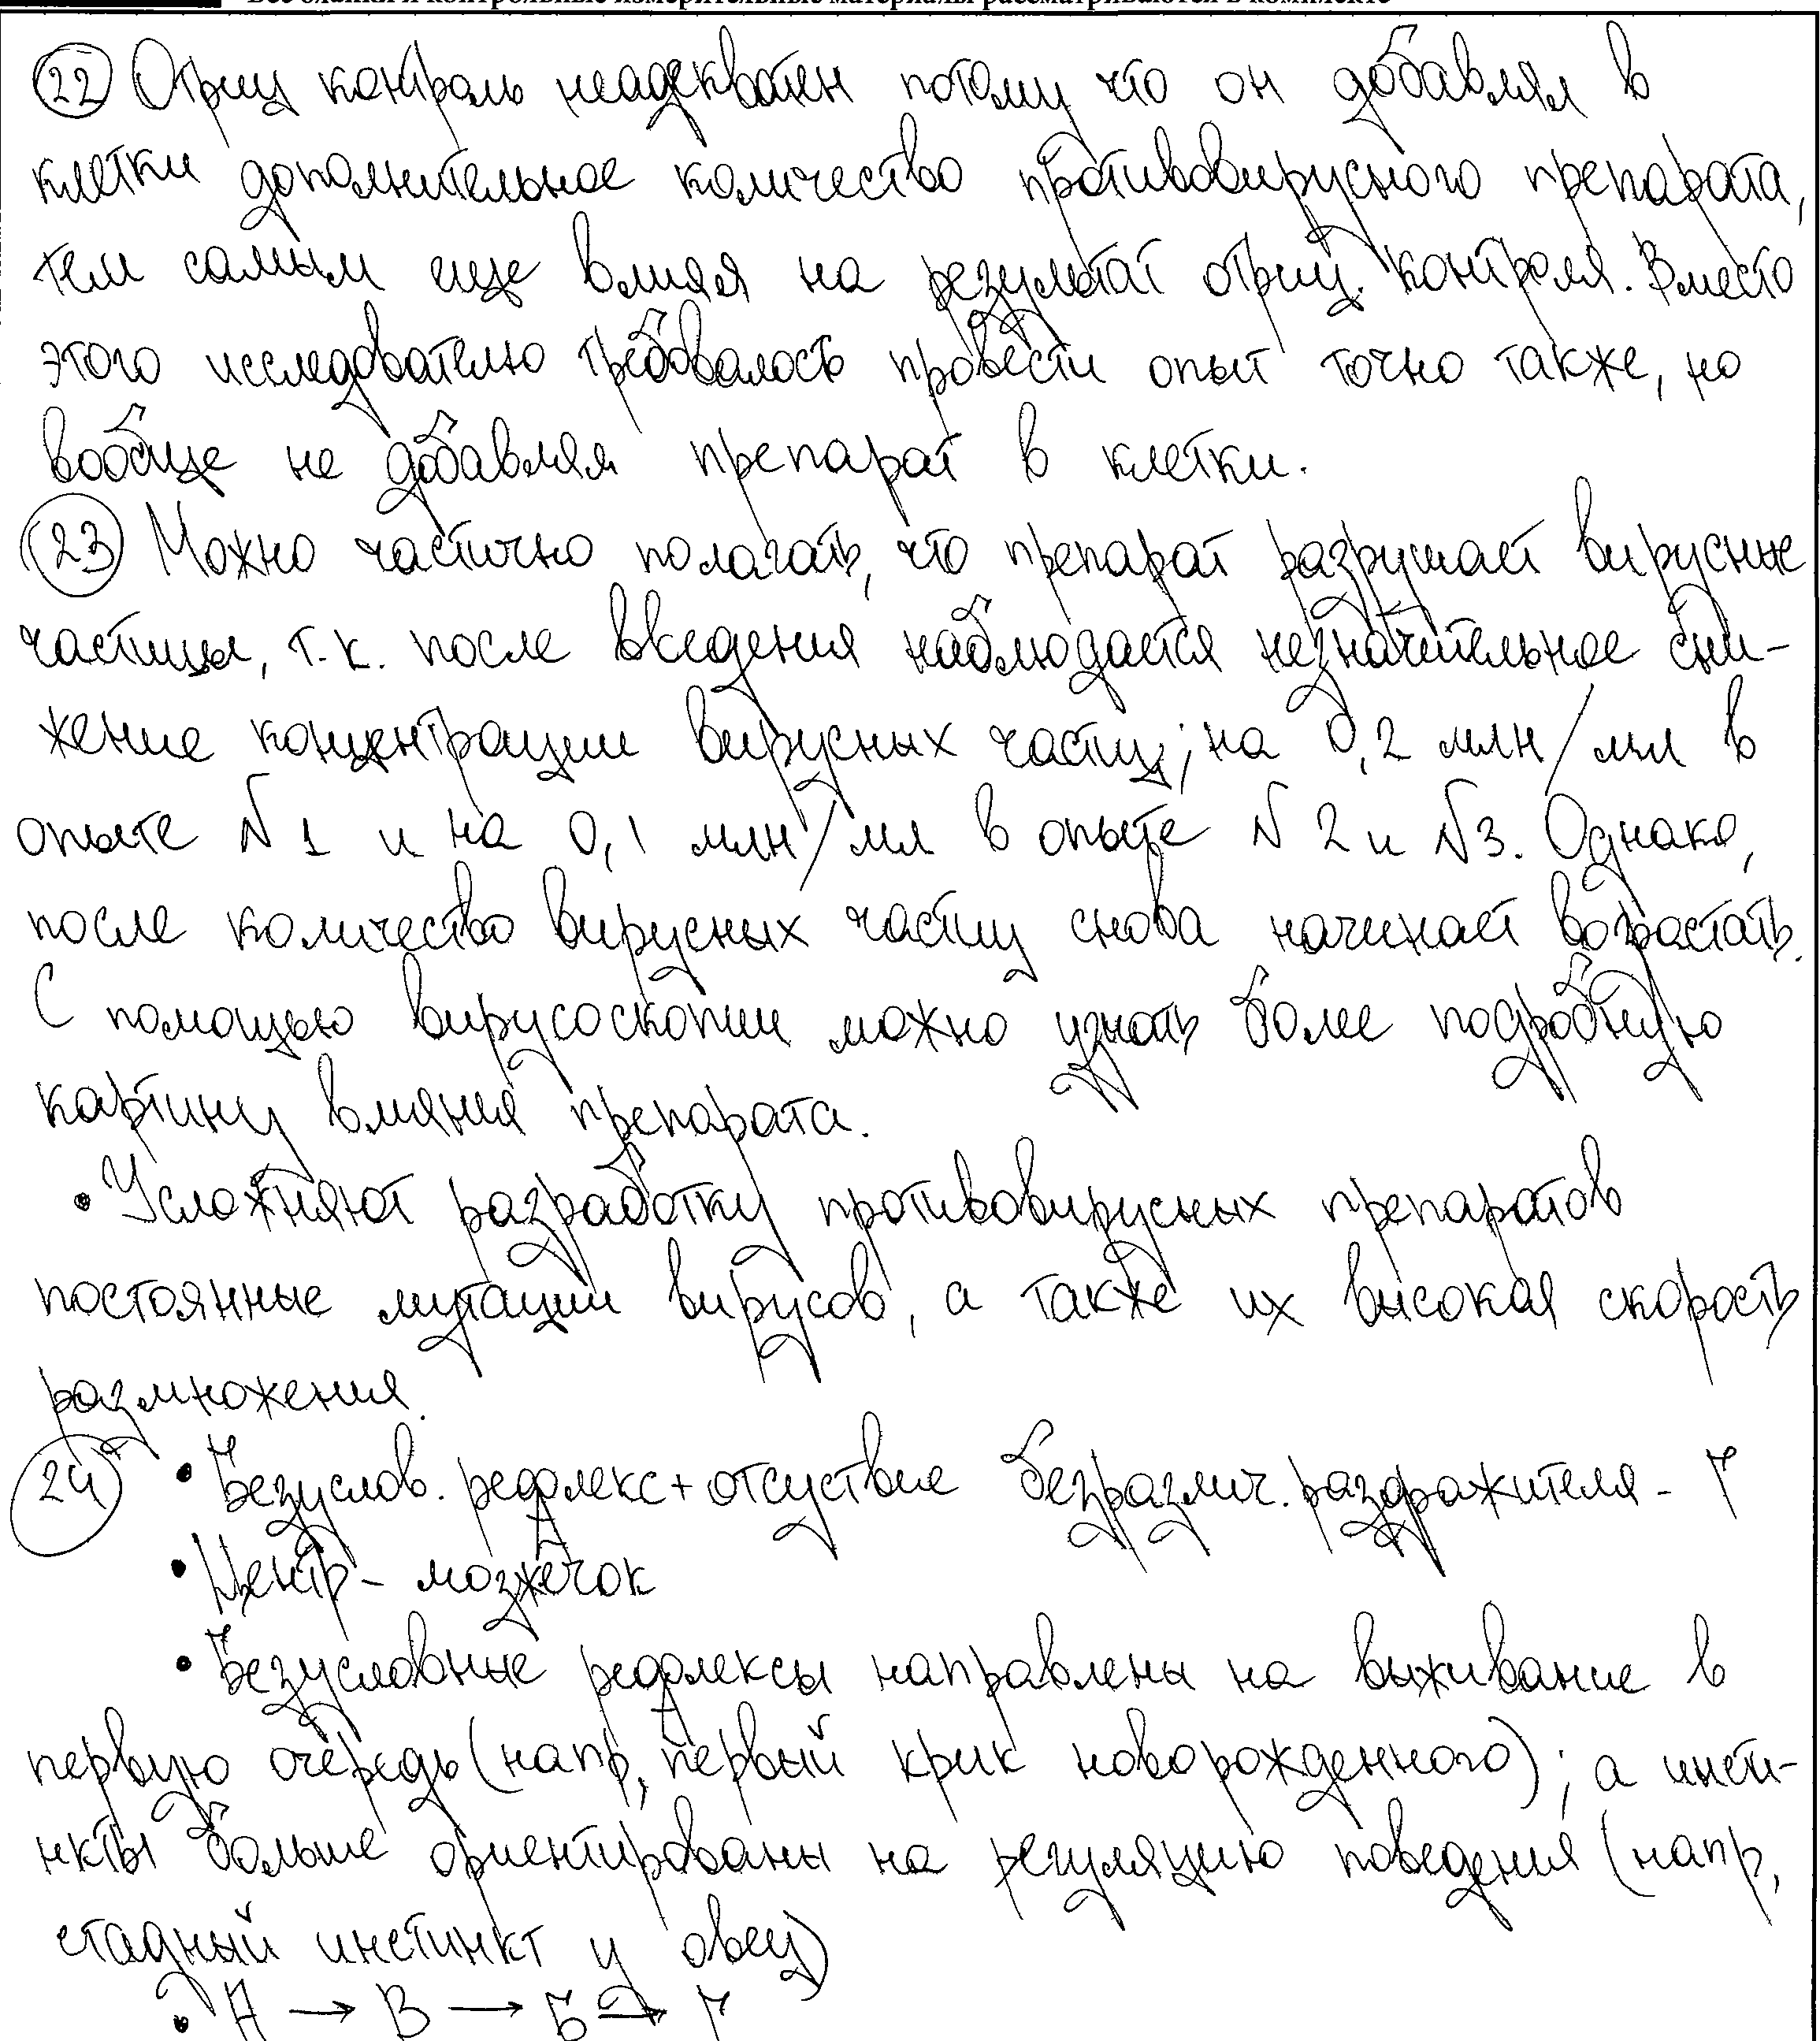 Все бланки и контрольные измерительные материалы рассматриваются в комплекте
22 Отриц контроль неадекватен потому что он добавлял в
клетки дополнительное количество противовирусного препарата,
тем самым еще влияя на результат отриц. контроля. Вместо
этого исследователю требовалось провести опыт точно также, но
вообще не добавляя препарат в клетки.
23 Можно частично полагать, что препарат разрушает вирусные
частицы, т.к. после введения наблюдается незначительное сни-
жение концентрации вирусных частиц; на 0,2 млн/мл в
опыте №1 и на 0,1 млн/мл в опыте №2 и №3. Однако,
после количество вирусных частиц снова начинает возрастать.
С помощью вирусоскопии можно узнать более подробную
картину влияния препарата.
• Усложняют разработку противовирусных препаратов
постоянные мутации вирусов, а также их высокая скорость
размножения.
24 • Безуслов. рефлекс + отсуствие безразлич. раздражителя - Г
• Центр - мозжечок
• Безусловные рефлексы направлены на выживание в
первую очередь (напр, первый крик новорожденного); а инсти-
нкты больше ориентированы на регуляцию поведения (напр,
стадный инстинкт у овец)
• А → В → Б → Г